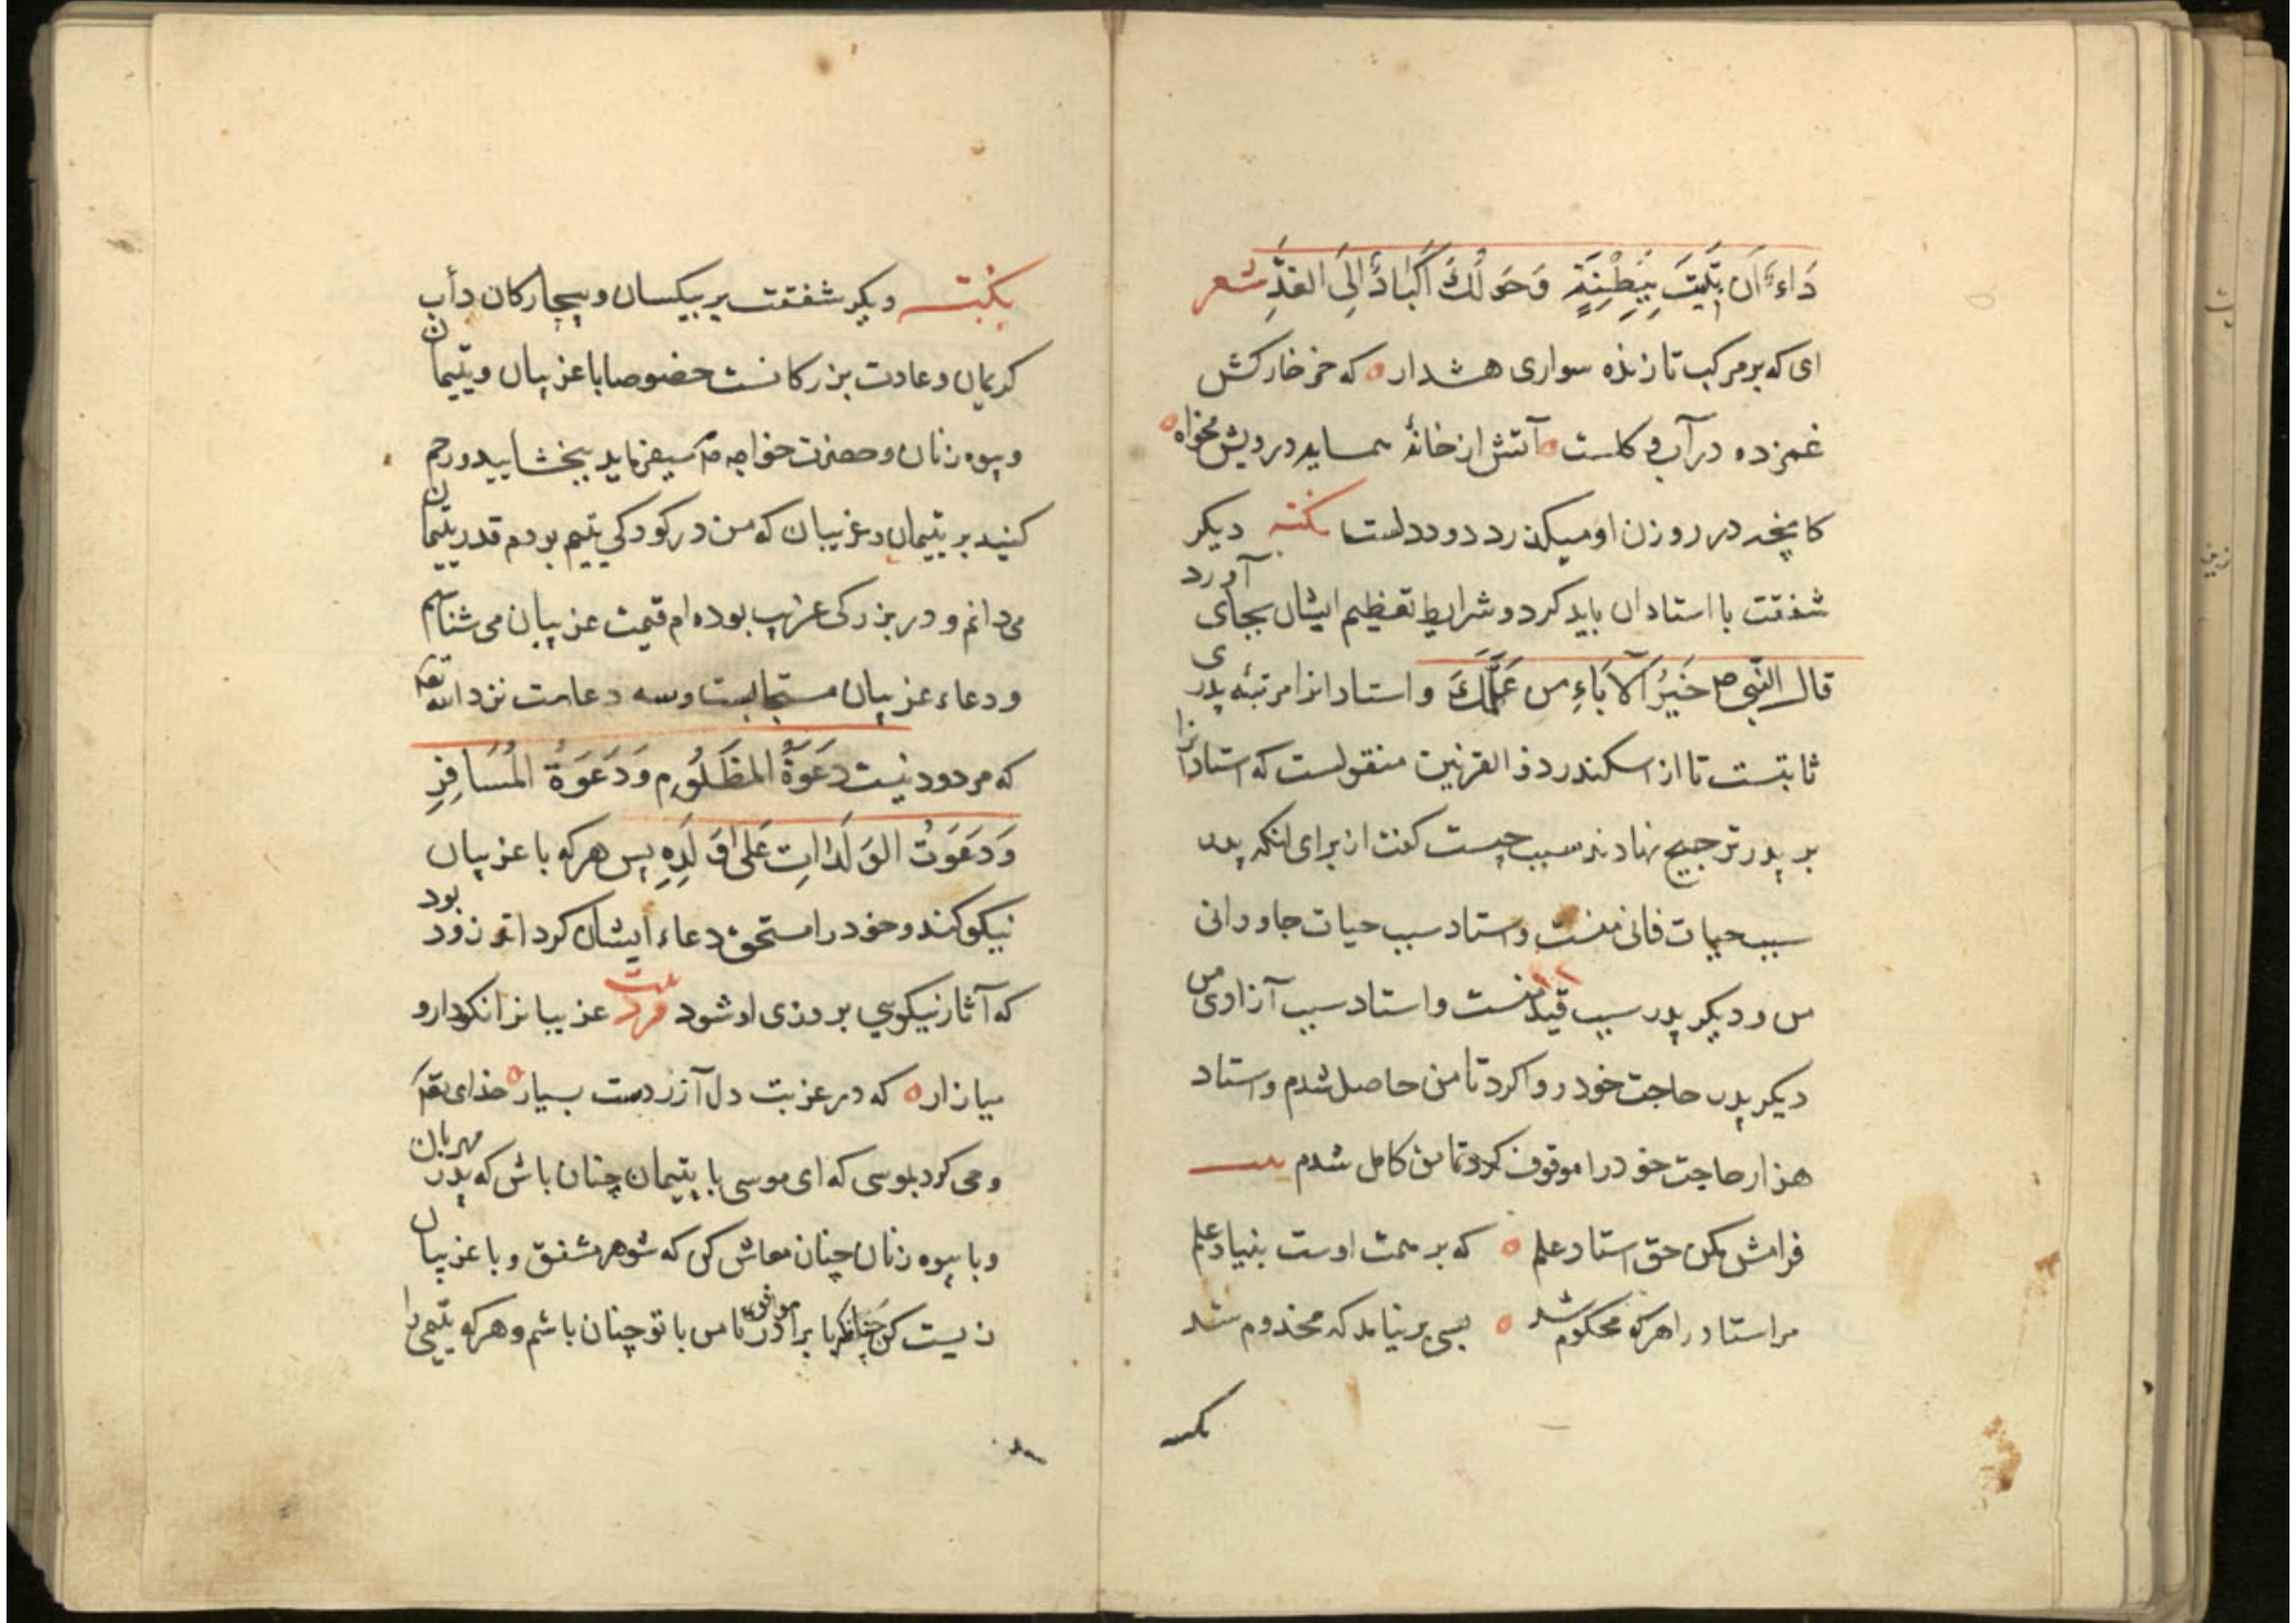 دَاءً اَن تَبِيتَ بِبِطْنَةٍ وَحَولَكَ اَكبَادٌ اِلَى القِدِّ شعر
ای که بر مرکب تازنده سواری هشدار ه که خر خارکش
غمزده در آب و کلست ه آتش از خانهٔ همسایه درویش مخواه ه
کانچه در روزن او میکذرد دود دلست نکته دیکر
شفقت با استادان باید کرد و شرایط تعظیم ایشان بجای آورد
قال النّبی ص خَیرُ الآبَاءِ من عَلَّمَكَ و استادانرا مرتبهٔ پدری
ثابتست تا از اسکندر ذو القرنین منقولست که استادانرا
بر پدر ترجیح نهادند سبب چیست کفت از برای انکه پدر
سبب حیات فانی منست و استاد سبب حیات جاودانی
من و دیکر پدر سبب قید منست و استاد سبب آزادی من
دیکر پدر حاجت خود روا کرد تا من حاصل شدم و استاد
هزار حاجت خود را موقوف کرد تا من کامل شدم بیت
فرامش مکن حق استاد علم ه که بر همت اوست بنیاد علم
مر استاد را هرکه محکوم شد ه بسی برنیامد که مخدوم شد
نکته
نکته دیکر شفقت بر بیکسان و بیچارکان دأب
کریمان و عادت بزرکانست خصوصا با غریبان و یتیمان
و بیوه زنان و حضرت خواجه ص میفرماید ببخشایید و رحم
کنید بر یتیمان و غریبان که من در کودکی یتیم بودم قدر یتیمان
می دانم و در بزرکی غریب بوده ام قیمت غریبان می شناسم
و دعاء غریبان مستجابست و سه دعاست نزد الله تعه
که مردود نیست دَعوَةُ المَظلُومِ وَدَعوَةُ المُسَافِرِ
وَدَعوَتُ الوَلَدَاتِ عَلى وَلَدِهِ پس هرکه با غریبان
نیکو کند و خود را مستحق دعاء ایشان کرداند زود بود
که آثار نیکویی بروزی او شود فرد بیت غریبانرا نکودار و
میازار ه که در غربت دل آزردست بسیار ه خدای تعه
وحی کرد بموسی که ای موسی با یتیمان چنان باش که پدر مهربان
و با بیوه زنان چنان معاش کن که شوهر مشفق و با غریبان
زیست کن چنانکه با برادر موافق تا من با تو چنان باشم و هرکه یتیمی را